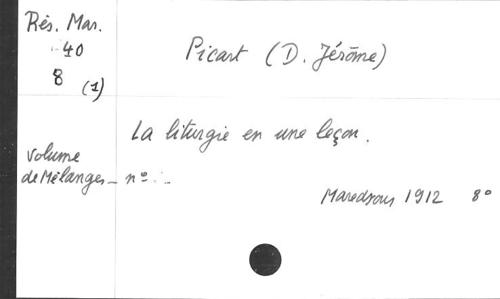 Rés. Mar.
40
8 (1)
Picart (D. Jérôme)
La liturgie en une leçon.
Volume
de Mélanges - nº. -
Maredsous 1912 8º